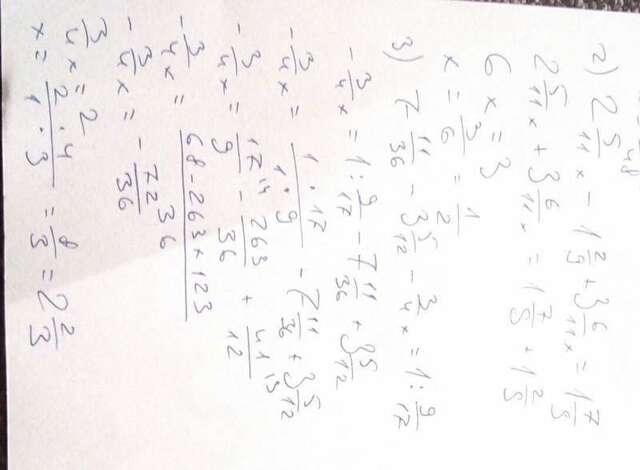 48
2) 2 5/11 x - 1 2/9 + 3 6/11 x = 1 7/5
2 5/11 x + 3 6/11 x = 1 7/5 + 1 2/5
6x = 3
x = 3/6 = 1/2
3) 7 11/36 - 3 5/12 - 3/4 x = 1 : 9/17
- 3/4 x = 1 : 9/17 - 7 11/36 + 3 5/12
- 3/4 x = 1·17/1·9 - 7 11/36 + 3 5/12
- 3/4 x = 17\4/9 - 263/36 + 41\3/12
- 3/4 x = 68-263+123/36
- 3/4 x = - 72/36
3/4 x = 2
x = 2·4/1·3 = 8/3 = 2 2/3